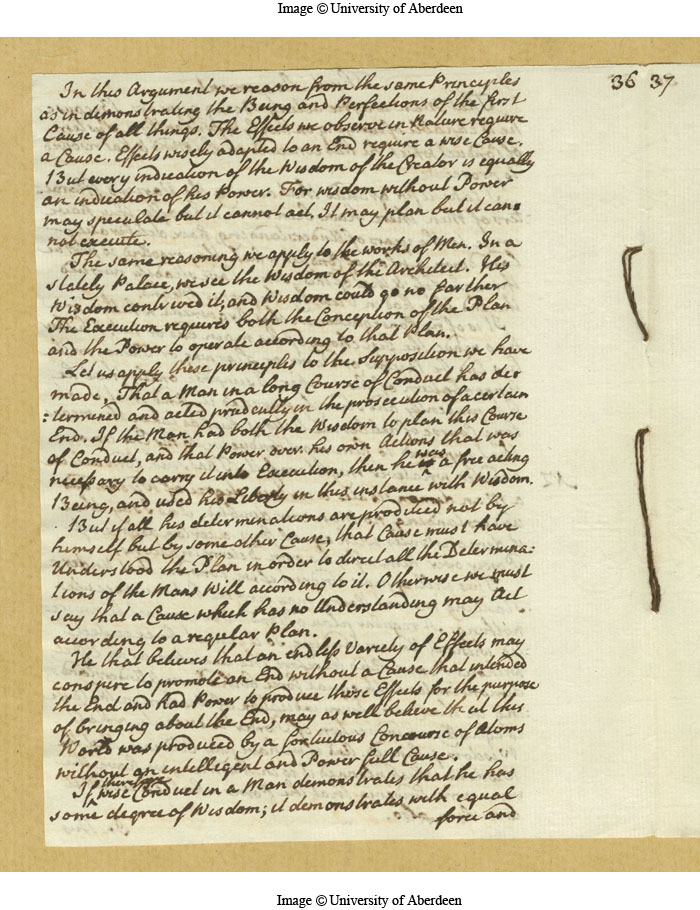 Image © University of Aberdeen
36 37
In this Argument we reason from the same Principles
as in demonstrating the Being and Perfections of the first
Cause of all things. The Effects we observe in Nature require
a Cause. Effects wisely adapted to an End require a wise Cause.
But every indication of the Wisdom of the Creator is equally
an indication of his Power. For wisdom without Power
may speculate but it cannot act. It may plan but it can=
not execute.
The same reasoning we apply to the works of Men. In a
stately Palace, we see the Wisdom of the Architect. His
Wisdom contrived it, and Wisdom could go no farther
The Execution requires both the Conception of the Plan
and the Power to operate according to that Plan.
Let us apply these principles to the Supposition we have
made, That a Man in a long Course of Conduct has de=
:termined and acted prudently in the prosecution of a certain
End. If the Man had both the Wisdom to plan this Course
of Conduct, and that Power over his own Actions that was
necessary to carry it into Execution, then he was a free acting
Being, and used his Liberty in this instance with Wisdom.
But if all his determinations are produced not by
himself but by some other Cause, that Cause must have
Understood the Plan in order to direct all the Determina:
tions of the Mans Will according to it. Otherwise we must
say that a Cause which has no Understanding may Act
according to a regular Plan.
He that believes that an endless Variety of Effects may
conspire to promote an End without a Cause that intended
the End and had Power to produce those Effects for the purpose
of bringing about the End, may as well believe that this
World was produced by a fortuitous Concourse of Atoms
without an intelligent and Power full Cause.
If therefore wise Conduct in a Man demonstrates that he has
some degree of Wisdom; it demonstrates with equal
force and
Image © University of Aberdeen